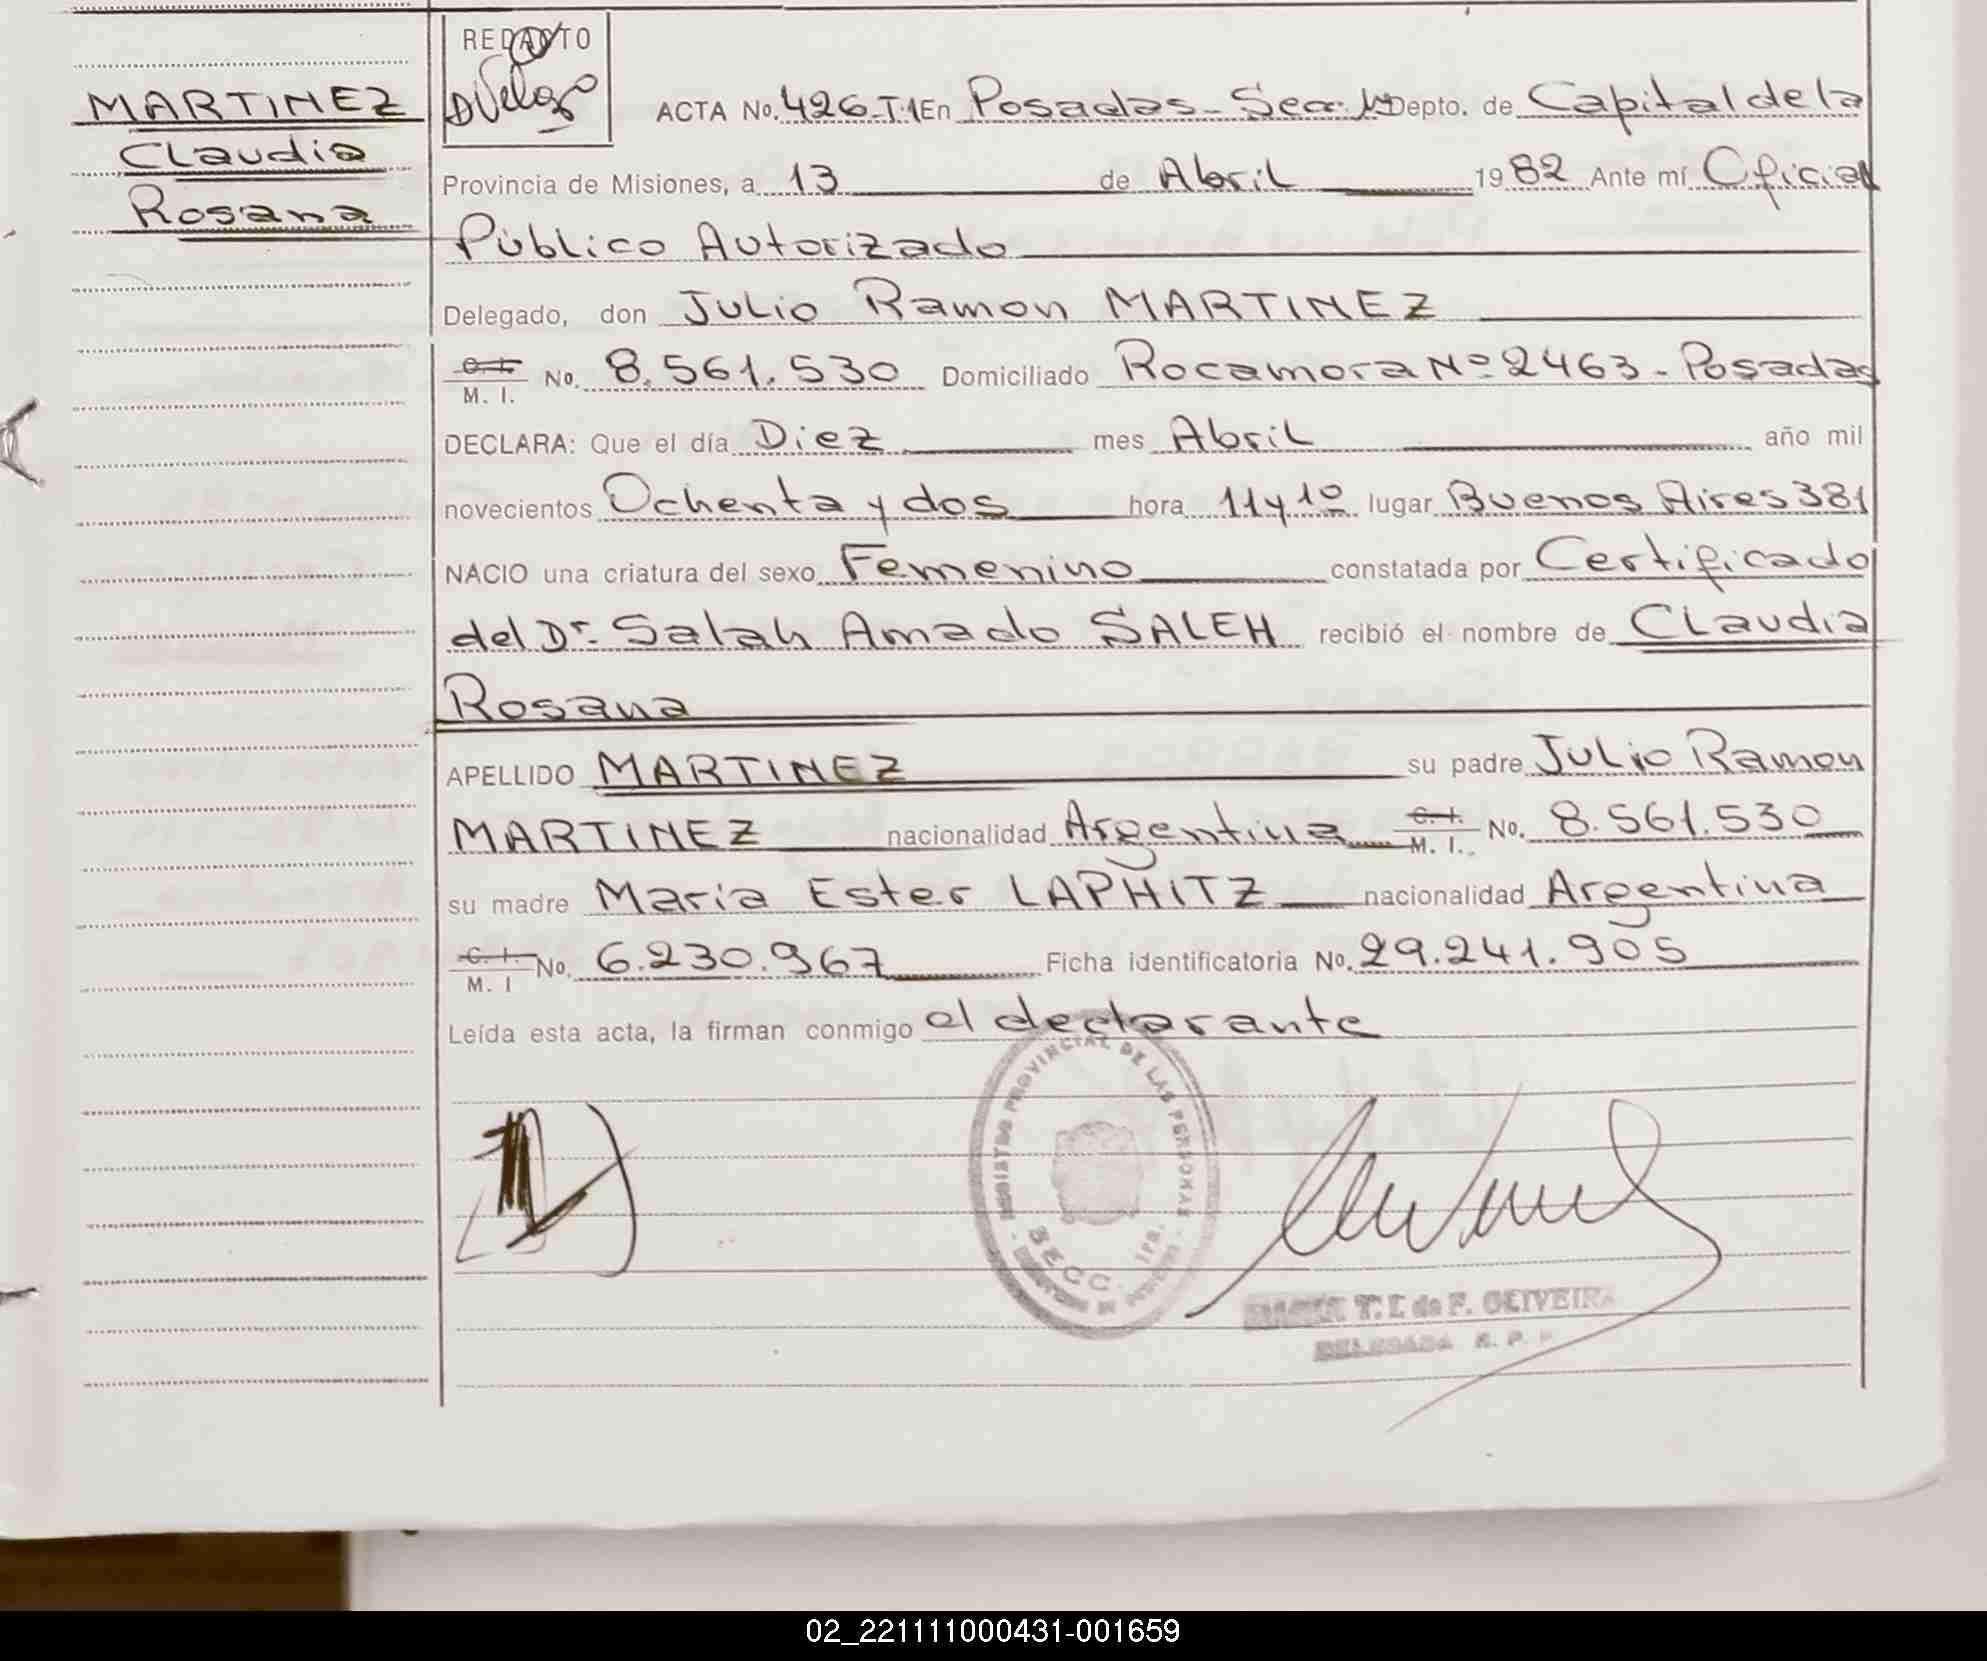 MARTINEZ
Claudia
Rosana
REDACTO
ACTA No. 426-T.1 En Posadas - Secc. 1ª Depto. de Capital de la
Provincia de Misiones, a 13 de Abril 1982 Ante mí Oficial
Público Autorizado
Delegado, don Julio Ramon MARTINEZ
C. I.
M. I. No. 8.561.530 Domiciliado Rocamora Nº 2463 - Posadas
DECLARA: Que el día Diez mes Abril año mil
novecientos Ochenta y dos hora 11 y 10 lugar Buenos Aires 381
NACIO una criatura del sexo Femenino constatada por Certificado
del Dr. Salah Amado SALEH recibió el nombre de Claudia
Rosana
APELLIDO MARTINEZ su padre Julio Ramon
MARTINEZ nacionalidad Argentina C. I. M. I. No. 8.561.530
su madre Maria Ester LAPHITZ nacionalidad Argentina
C. I.
M. I No. 6.230.967 Ficha identificatoria No. 29.241.905
Leída esta acta, la firman conmigo el declarante
REGISTRO PROVINCIAL DE LAS PERSONAS
SECC. 1ra.
T. I. de F. OLIVEIRA
DELEGADA R. P. P.
02_221111000431-001659